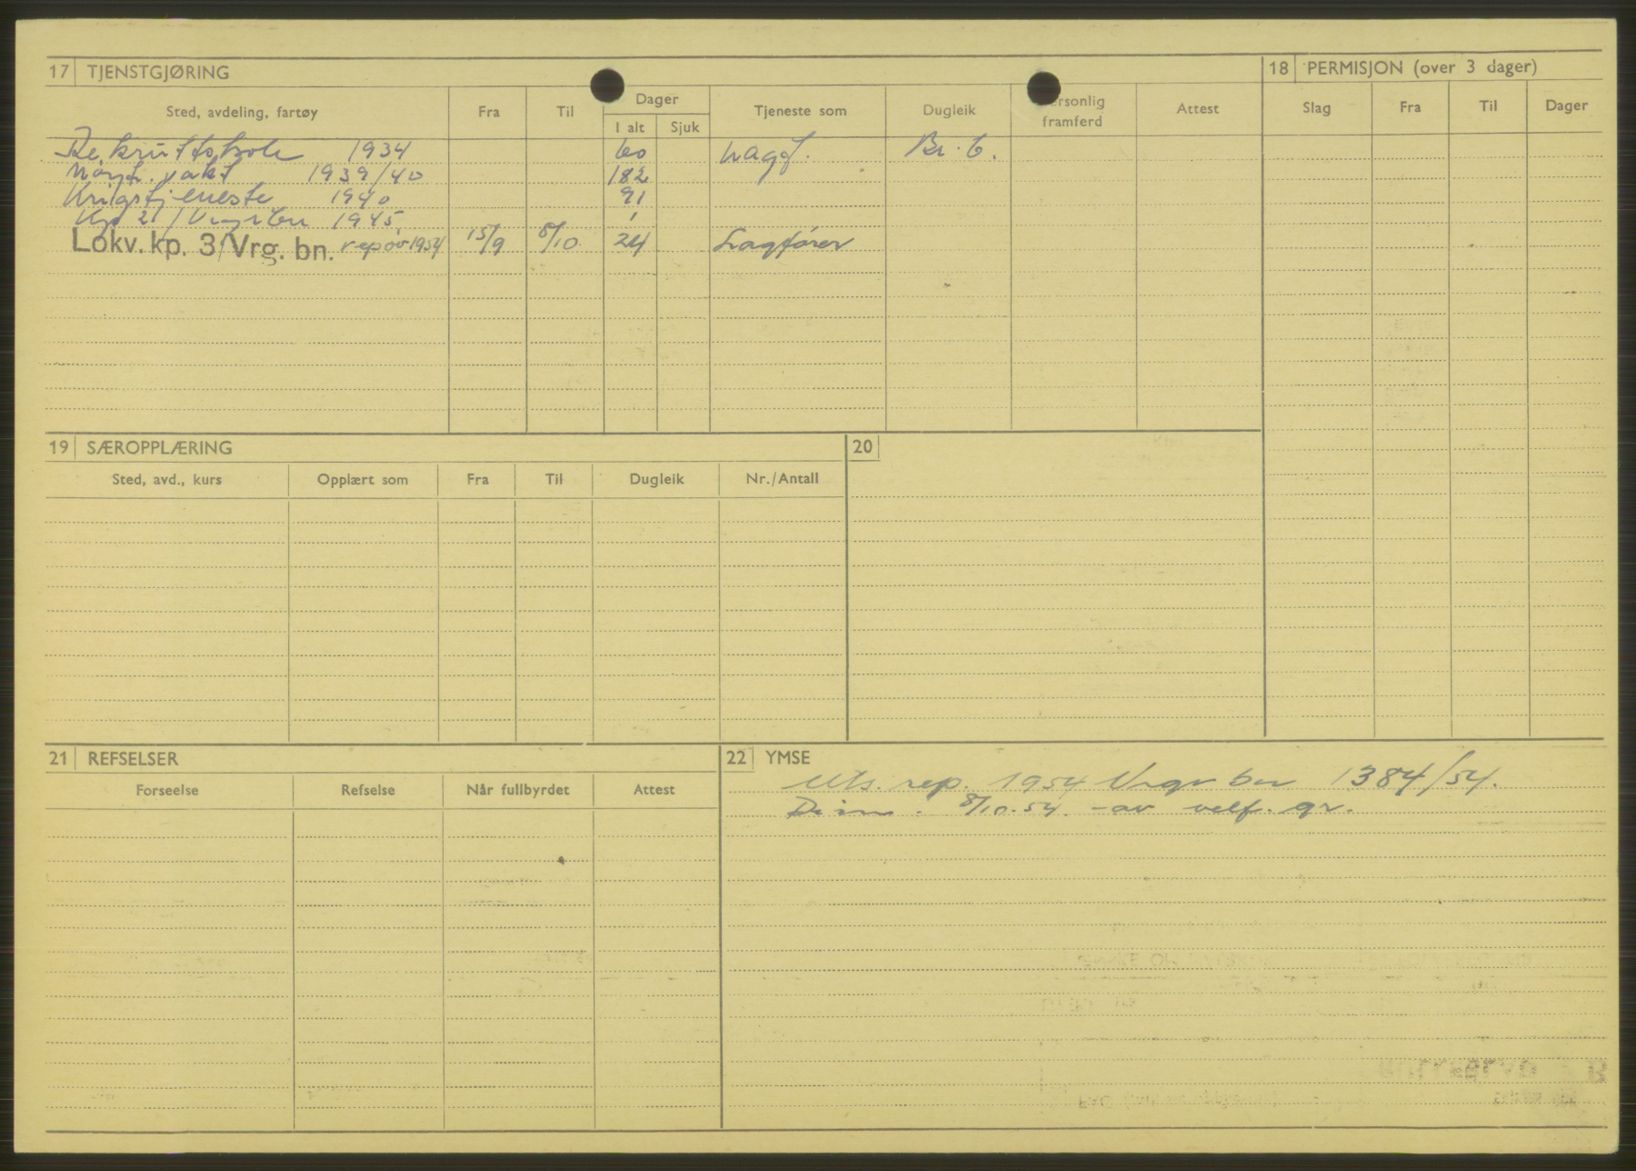 17 TJENSTGJØRING
Sted, avdeling, fartøy Fra Til Dager Tjeneste som Dugleik ersonlig framferd Attest
I alt Sjuk
Rekruttskole 1934 60 Lagf. Br. b.
Nøyt. vakt 1939/40 182
Krigstjeneste 1940 91
Kp 21/Vrgr.bn 1945 1
Lokv. kp. 3/Vrg. bn. repøv 1954 15/9 8/10 24 Lagfører
18 PERMISJON (over 3 dager)
Slag Fra Til Dager
19 SÆROPPLÆRING
Sted, avd., kurs Opplært som Fra Til Dugleik Nr./Antall
20
21 REFSELSER
Forseelse Refselse Når fullbyrdet Attest
22 YMSE
Uts. rep. 1954 Vrgr bn 1384/54.
Dim. 8/10.54. - av velf. gr.